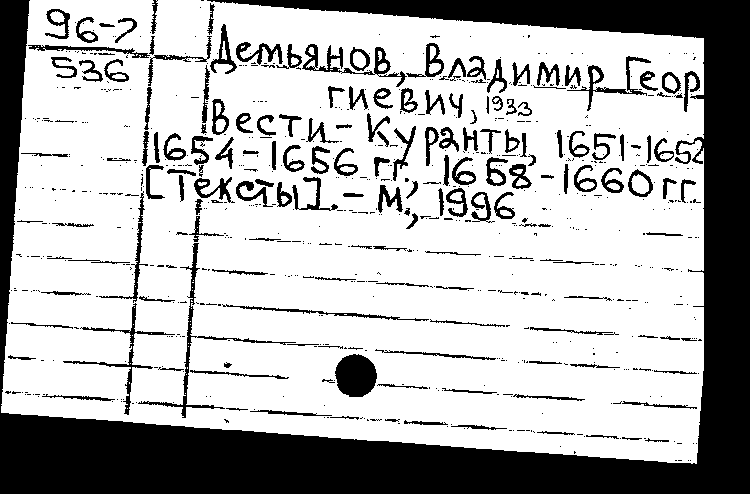 96-7
536
Демьянов, Владимир Геор
гиевич, 1933
Вести-Куранты, 1651-1652
1654-1656 гг., 1658-1660 гг.
[Тексты]. - М., 1996.